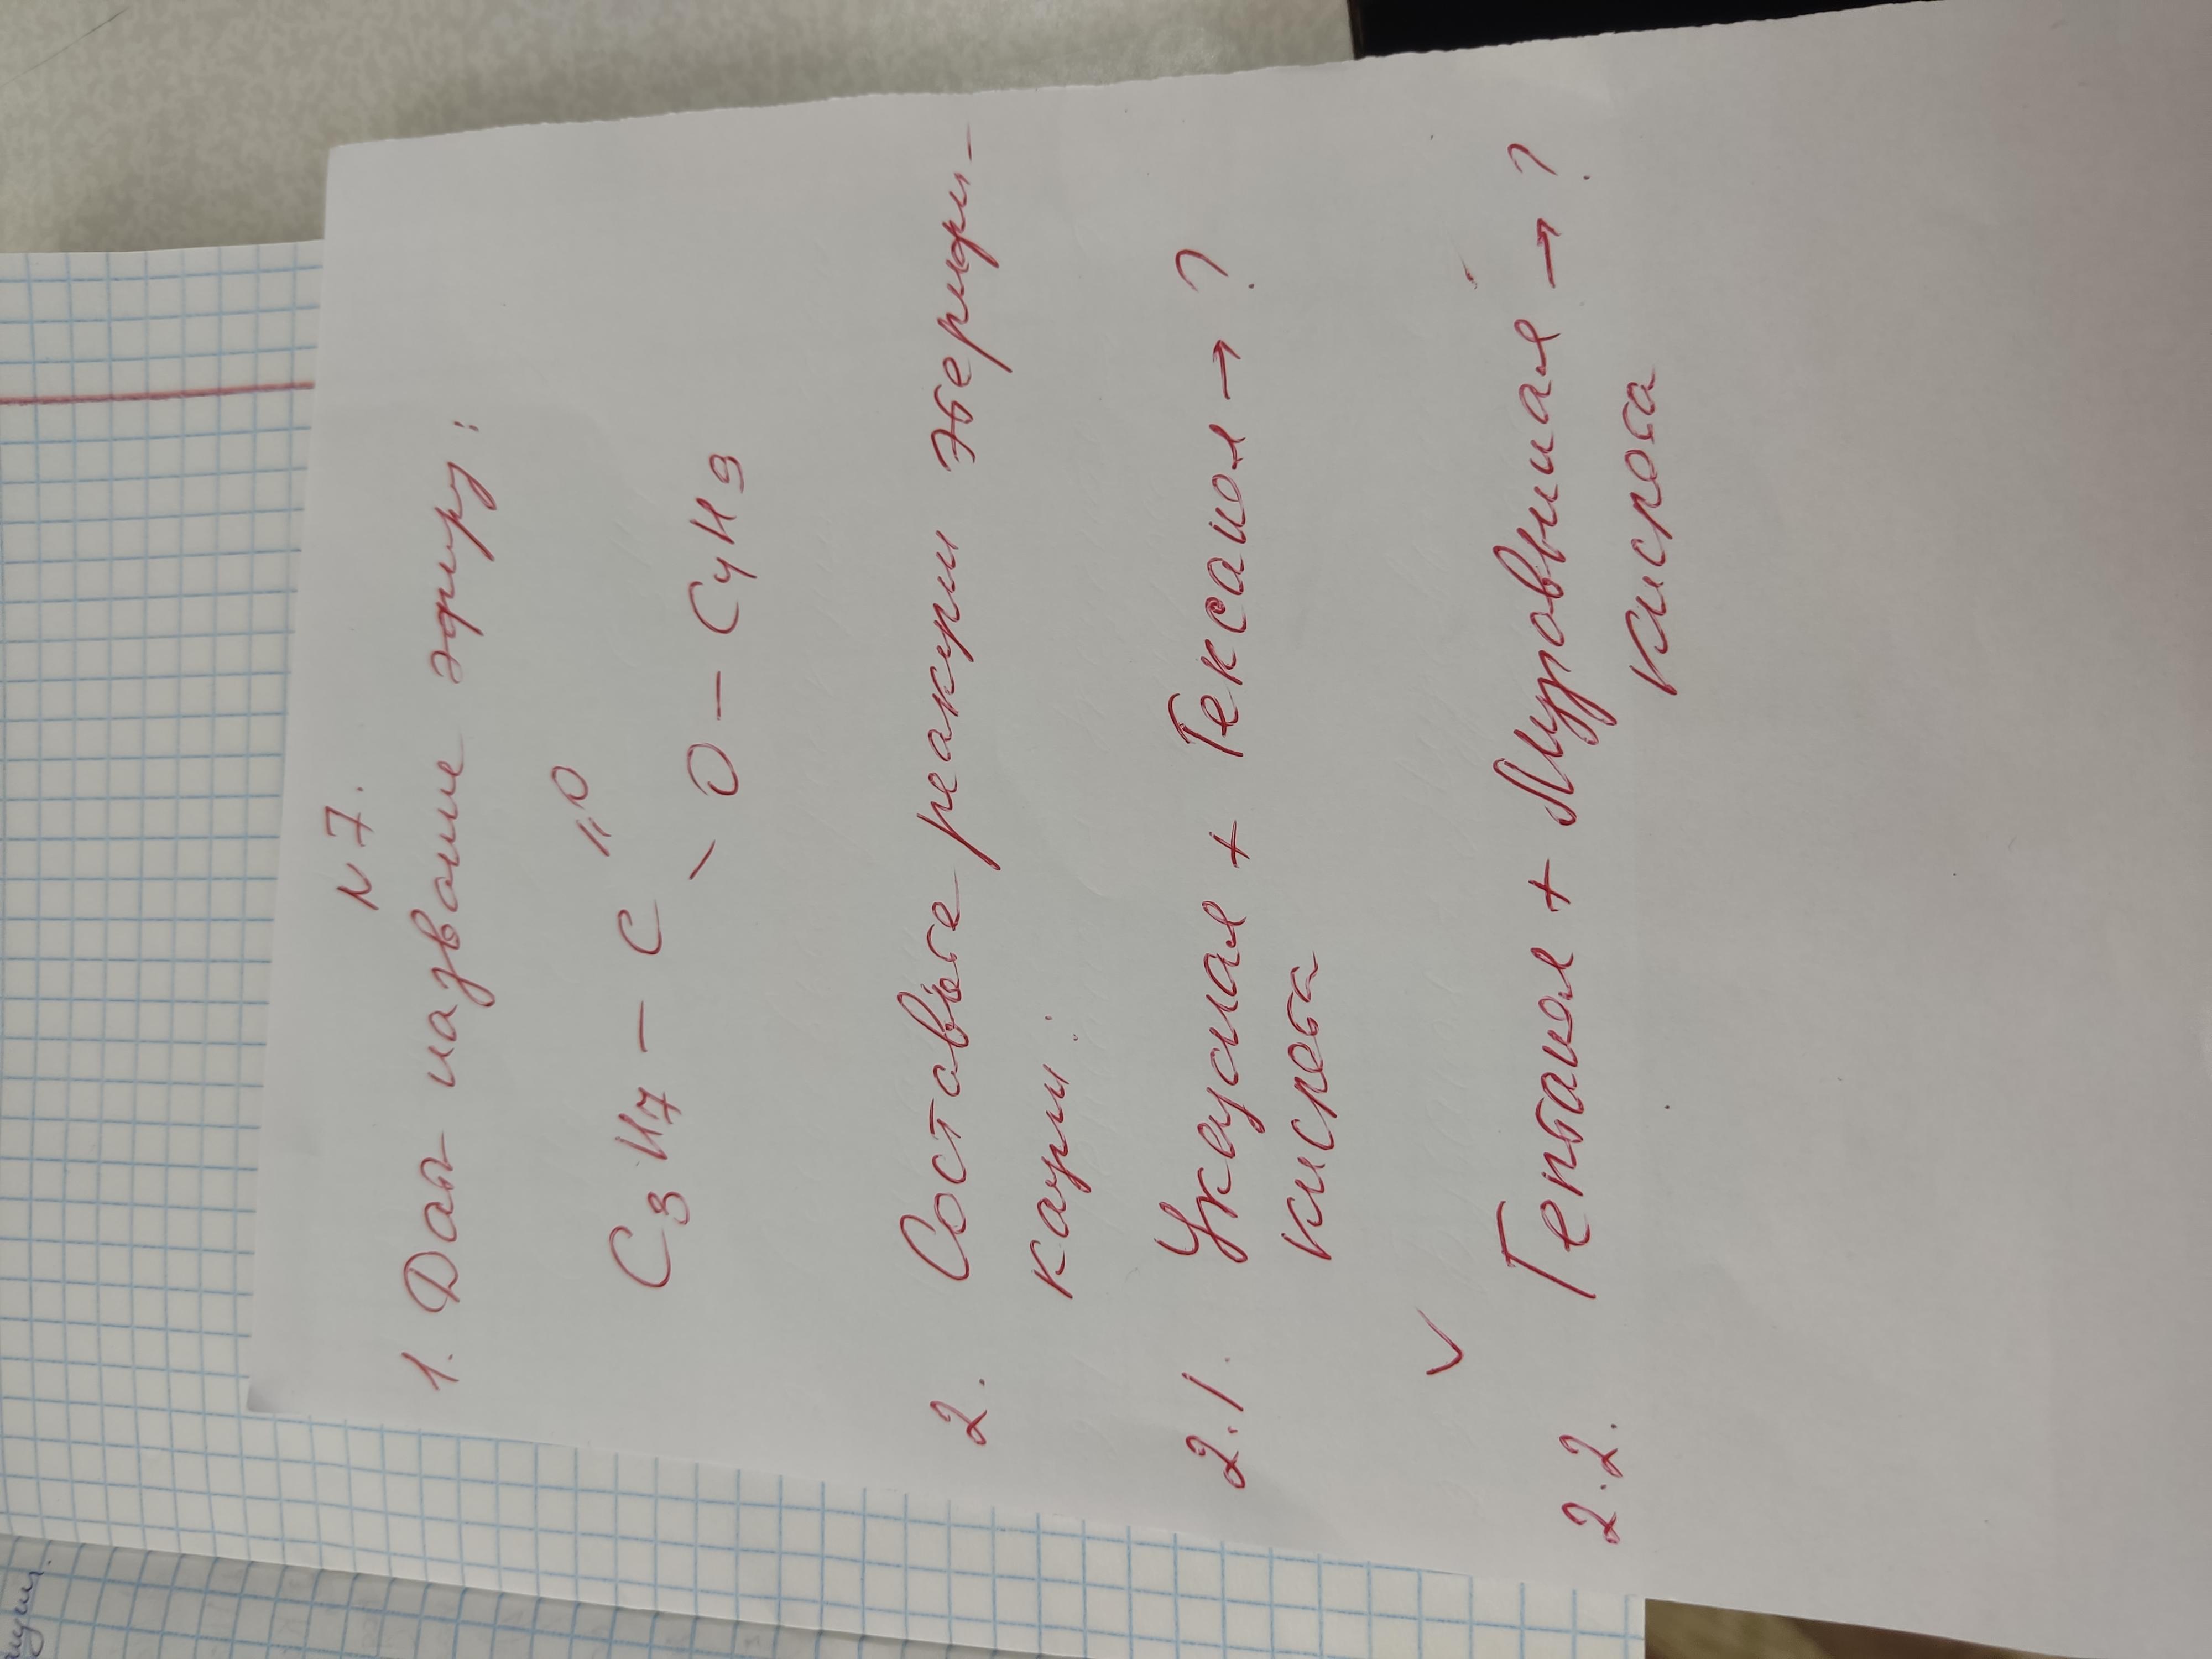 N 7.
1. Дать название эфиру:
C3H7 — C
=O
\ O — C4H9
2. Составьте реакции этерифи-
кации:
2.1. Уксусная + Гексанол → ?
кислота
✓
2.2. Гептанол + Муравьиная → ?
кислота